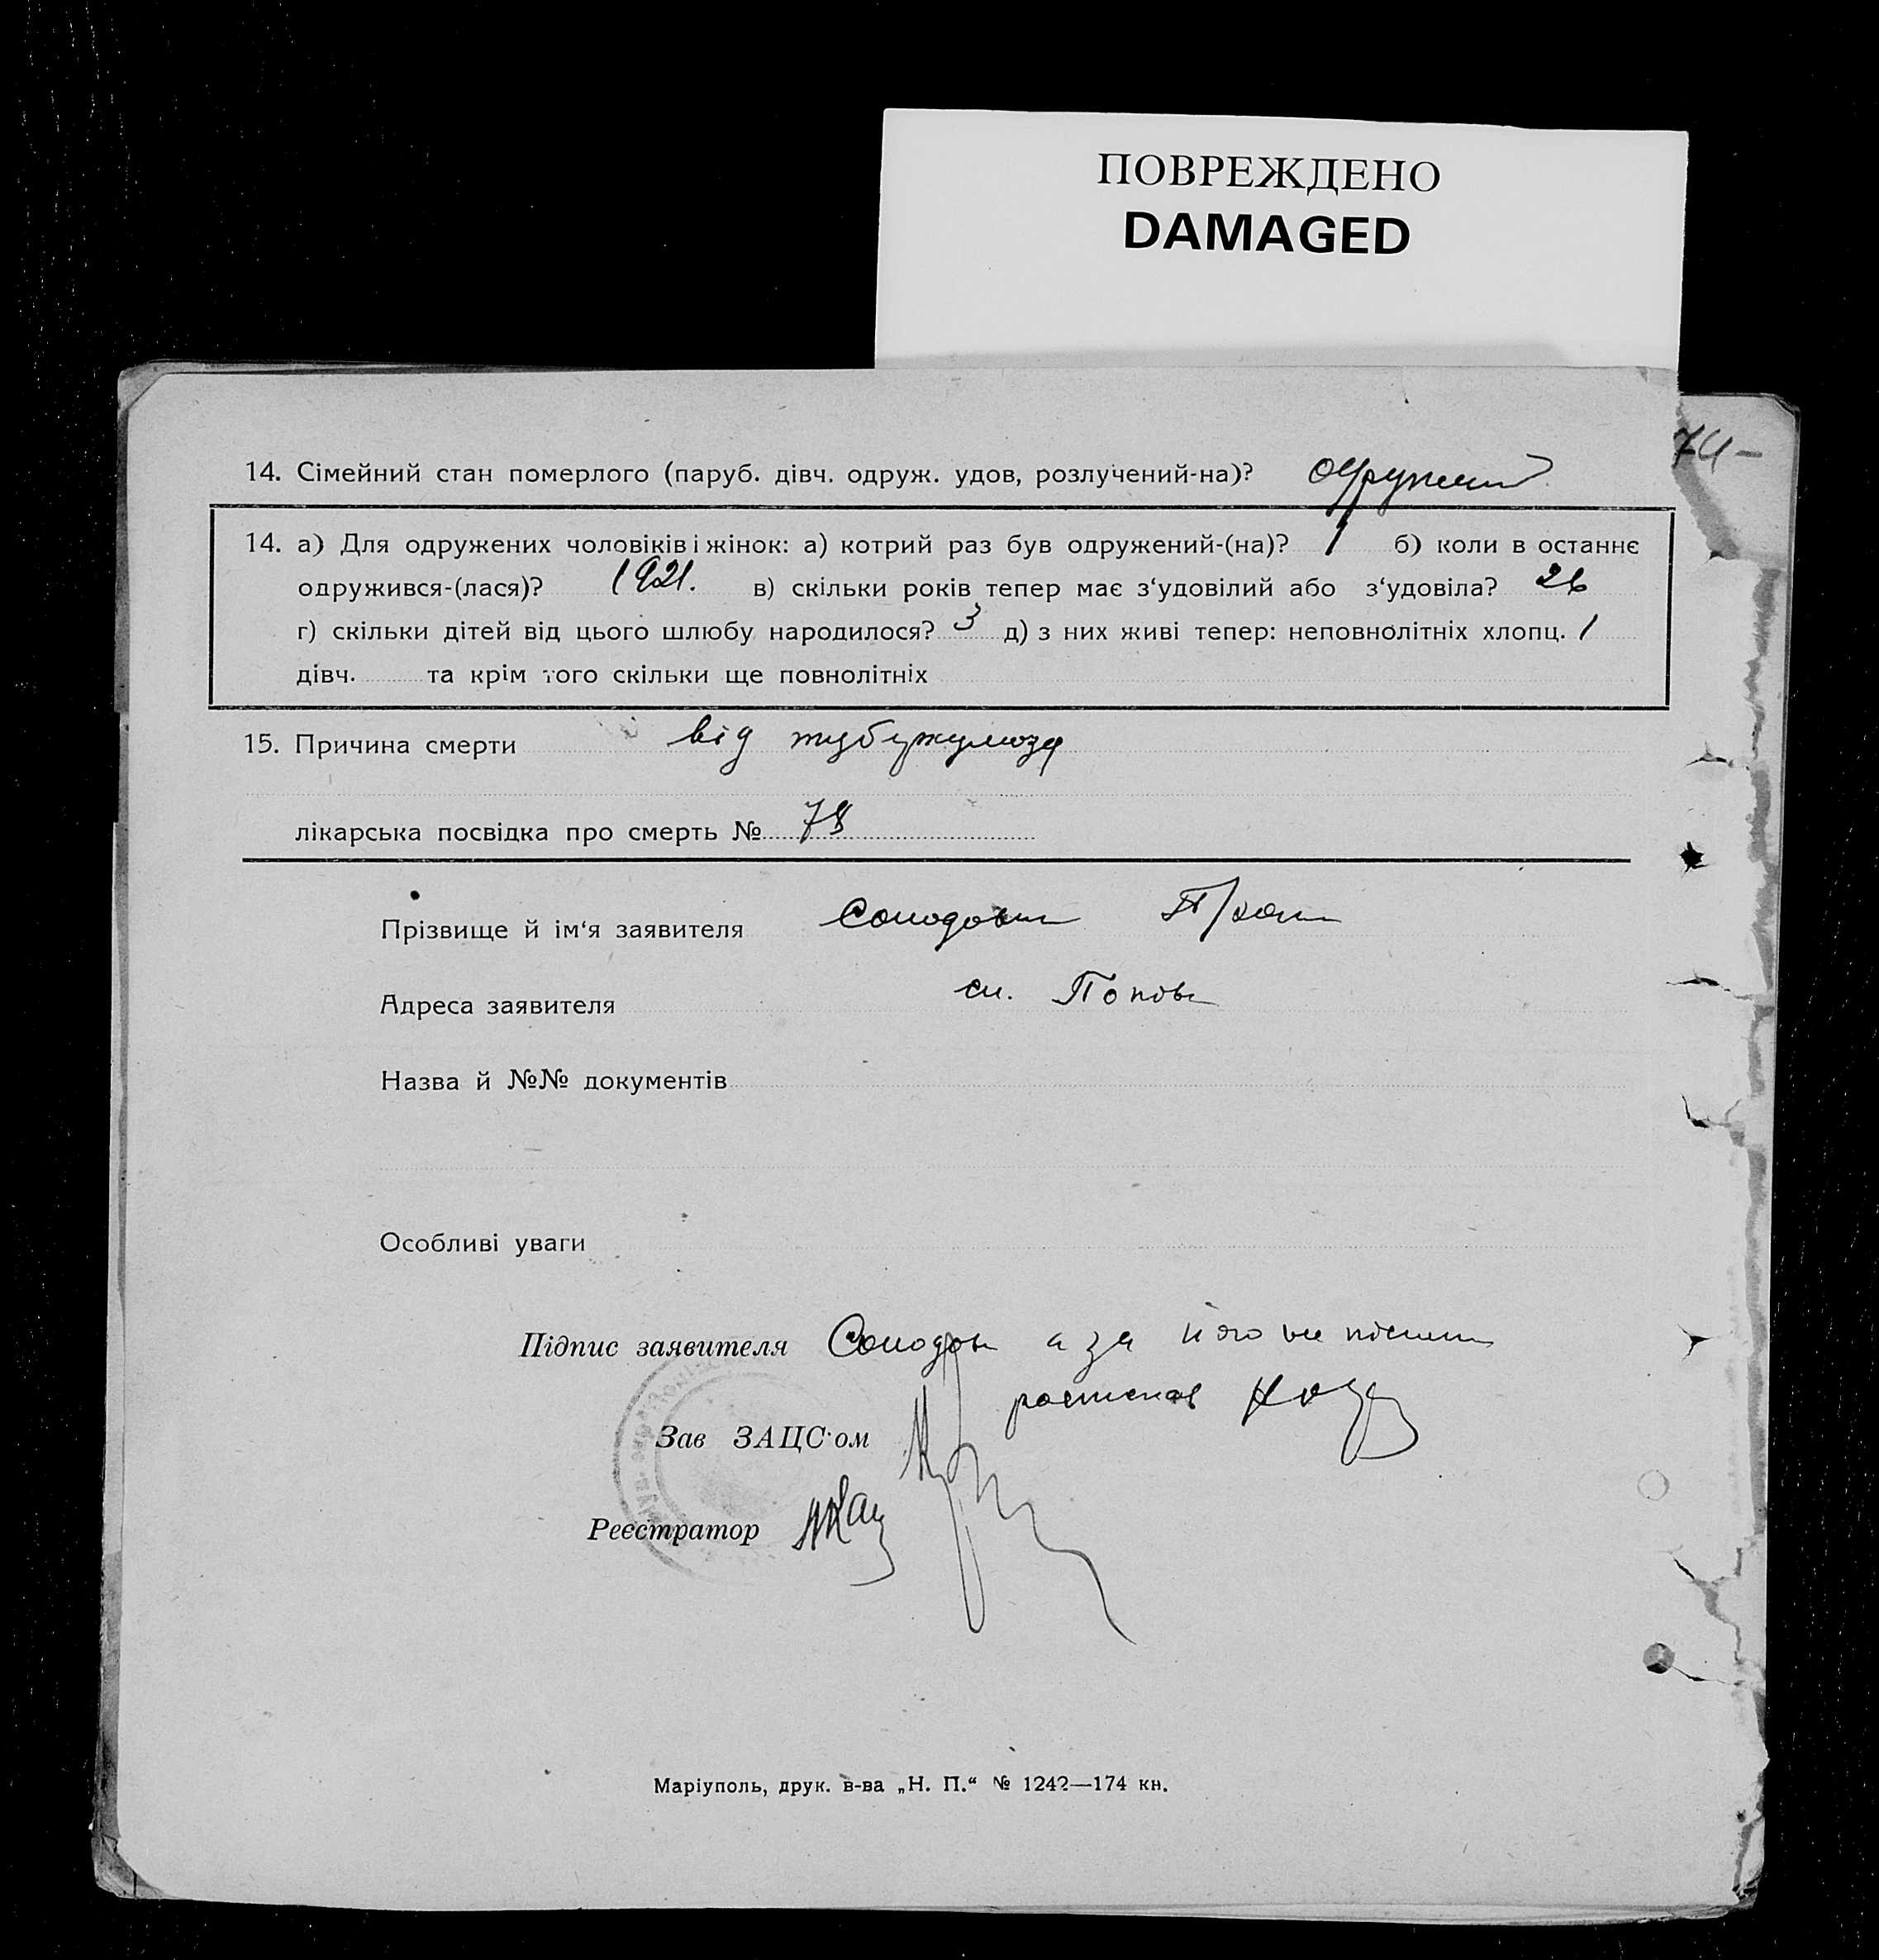 ПОВРЕЖДЕНО
DAMAGED
74-
14. Сімейний стан померлого (паруб. дівч. одруж. удов, розлучений-на)?
14. а) Для одружених чоловіків і жінок: а) котрий раз був одружений-(на)? 1 б) коли в останнє
одружився-(лася)? 1921. в) скільки років тепер має з‘удовілий або з‘удовіла? 26
г) скільки дітей від цього шлюбу народилося? 3 д) з них живі тепер: неповнолітніх хлопц. 1
дівч. та крім того скільки ще повнолітніх
15. Причина смерти від
лікарська посвідка про смерть № 78
Прізвище й ім‘я заявителя
Адреса заявителя
Назва й №№ документів
Особливі уваги
Підпис заявителя а за
Зав ЗАЦС‘ом
Реєстратор
Маріуполь, друк. в-ва „Н. П.“ № 1242—174 кн.